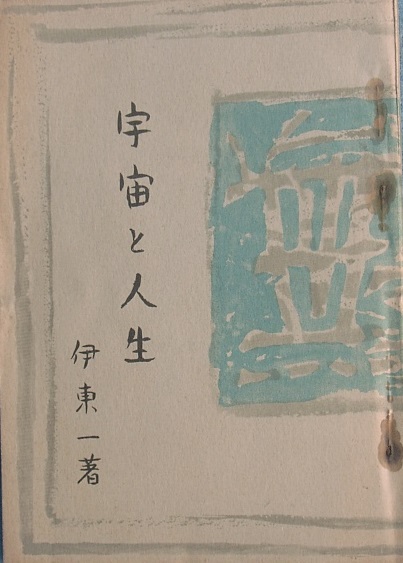 宇宙と人生
伊東一著